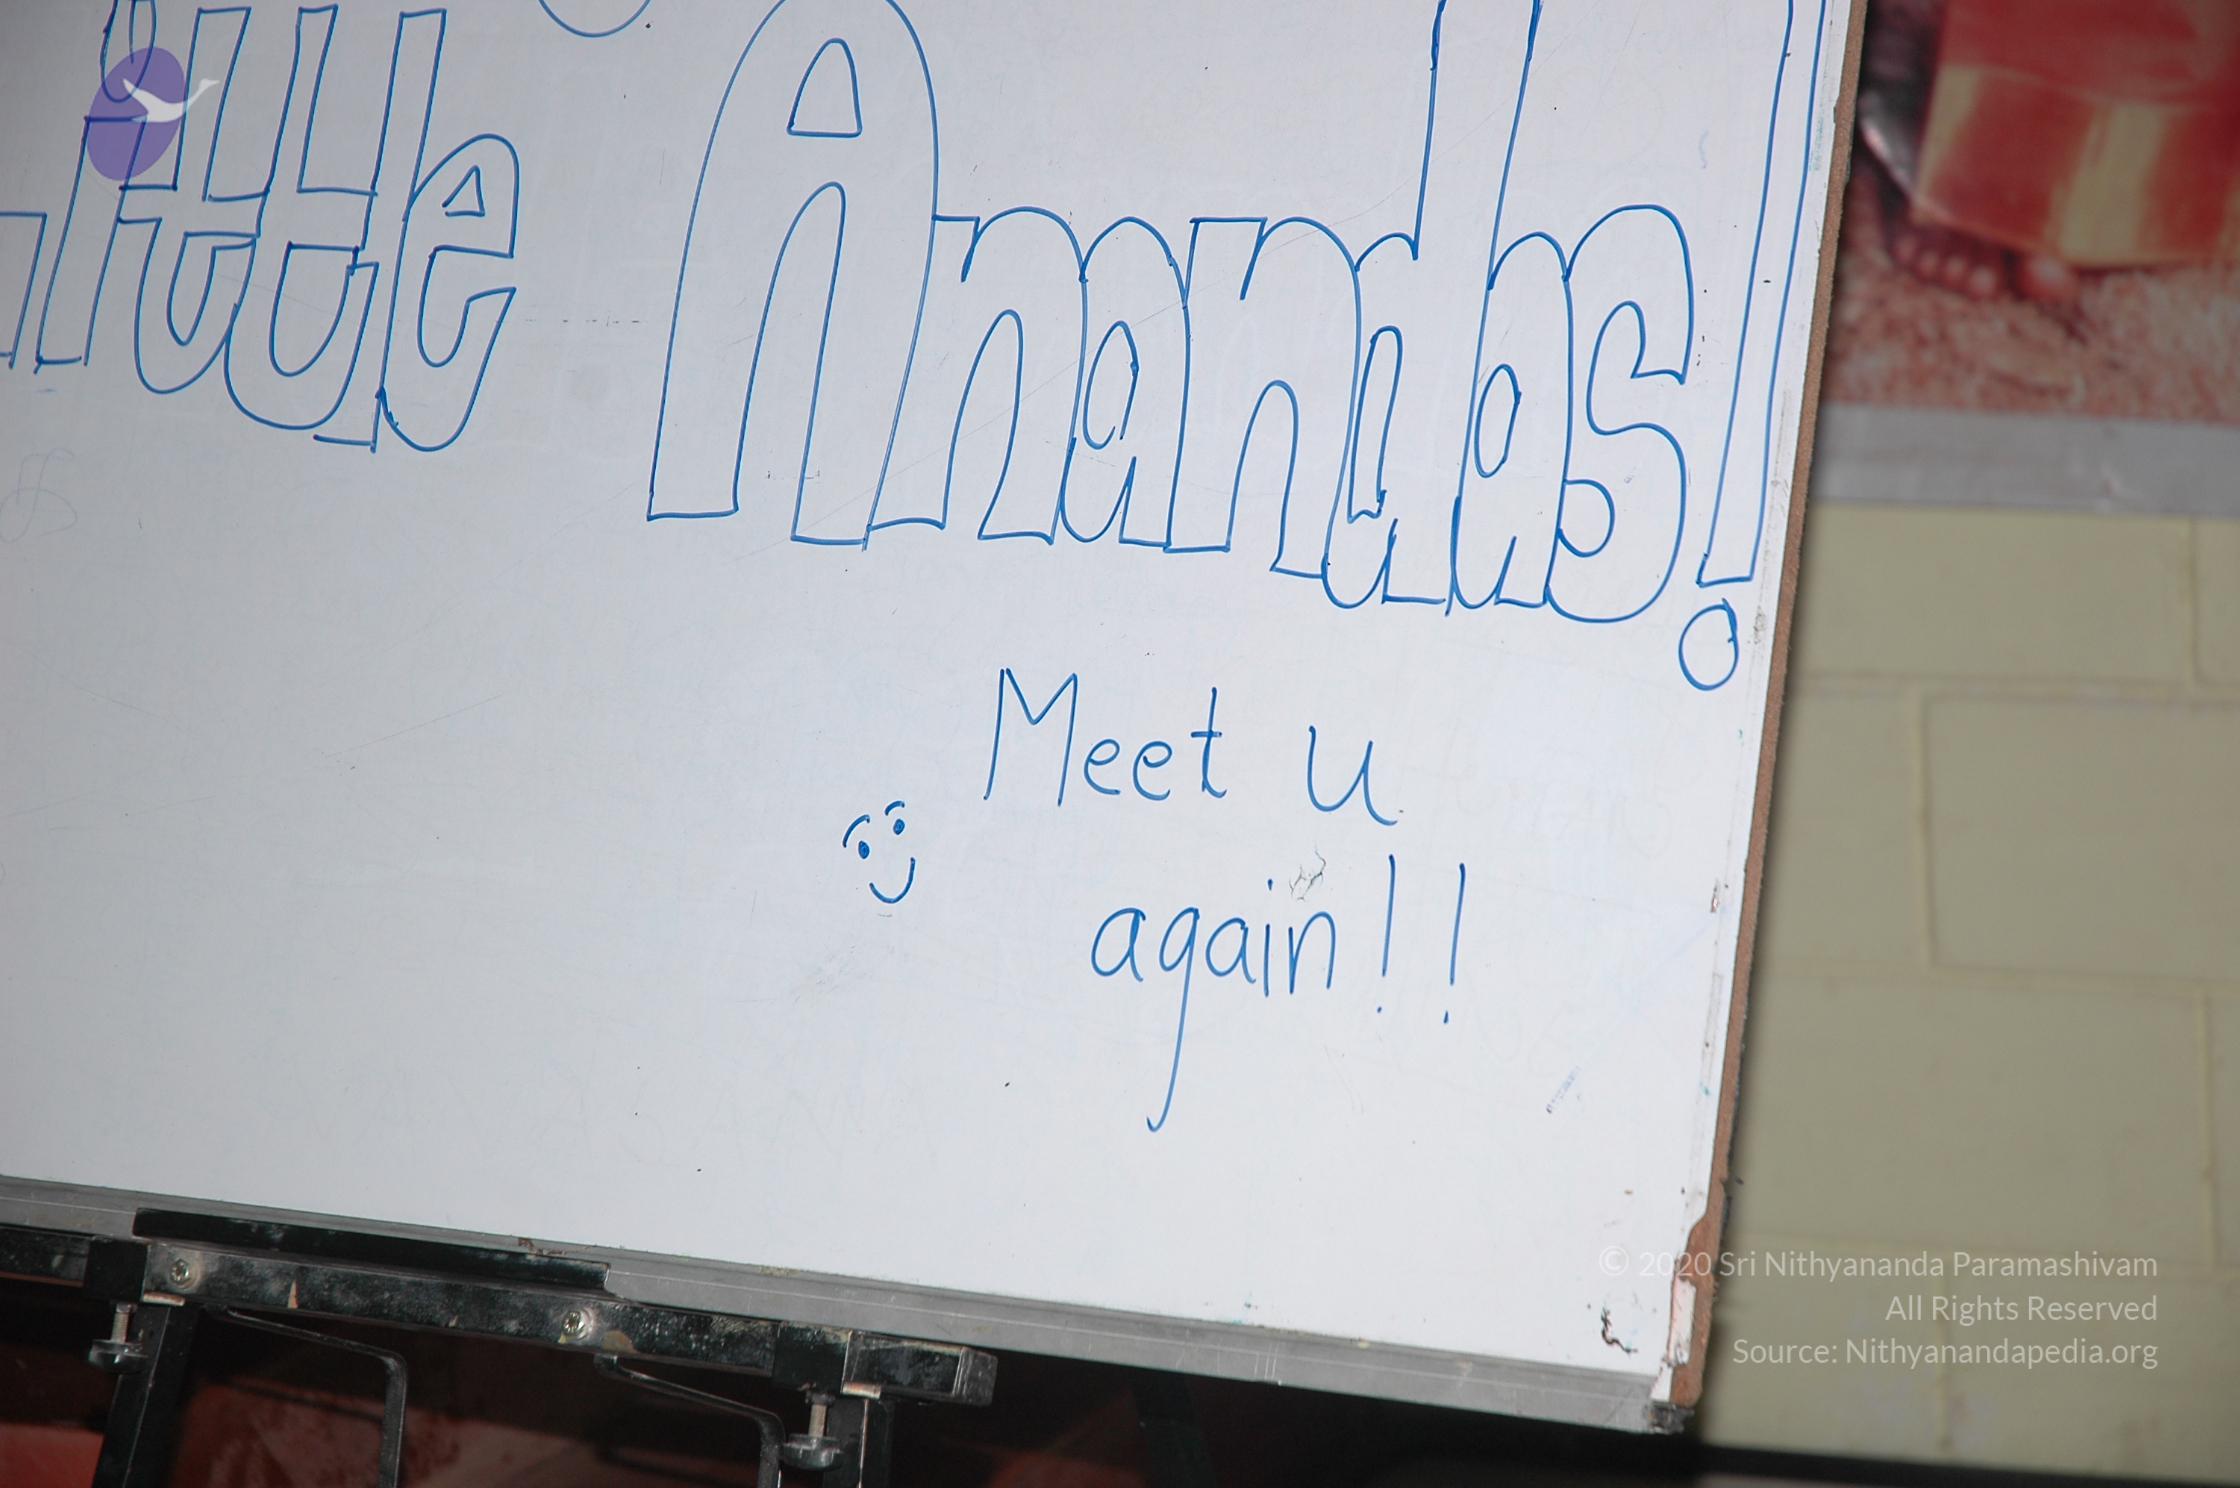 Little Anandas!
Meet u
again!!
© 2020 Sri Nithyananda Paramashivam
All Rights Reserved
Source: Nithyanandapedia.org